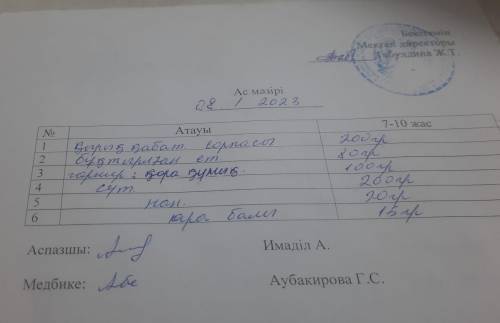 Бекітемін
Мектеп директоры
Ас мәзірі
08 1 2023
№ Атауы 7-10 жас
1 сорпасы 200гр
2 бұқтырылған ет 80гр
3 гарнир: қара күріш. 100гр
4 сүт. 200гр
5 нан. 20гр
6 қара бал 15гр
Аспазшы: Имаділ А.
Медбике: Аубакирова Г.С.